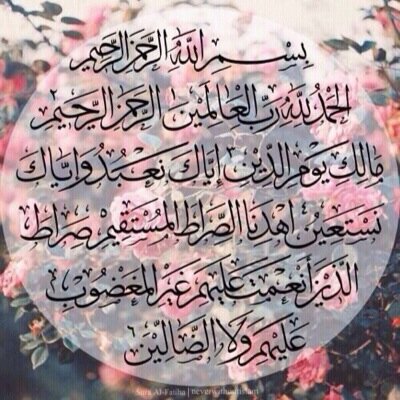 بِسْمِ اللَّهِ الرَّحْمَنِ الرَّحِيمِ
الْحَمْدُ لِلَّهِ رَبِّ الْعَالَمِينَ الرَّحْمَنِ الرَّحِيمِ
مَالِكِ يَوْمِ الدِّينِ إِيَّاكَ نَعْبُدُ وَإِيَّاكَ
نَسْتَعِينُ اهْدِنَا الصِّرَاطَ الْمُسْتَقِيمَ صِرَاطَ
الَّذِينَ أَنْعَمْتَ عَلَيْهِمْ غَيْرِ الْمَغْضُوبِ
عَلَيْهِمْ وَلَا الضَّالِّينَ
Sura Al-Fatiha |